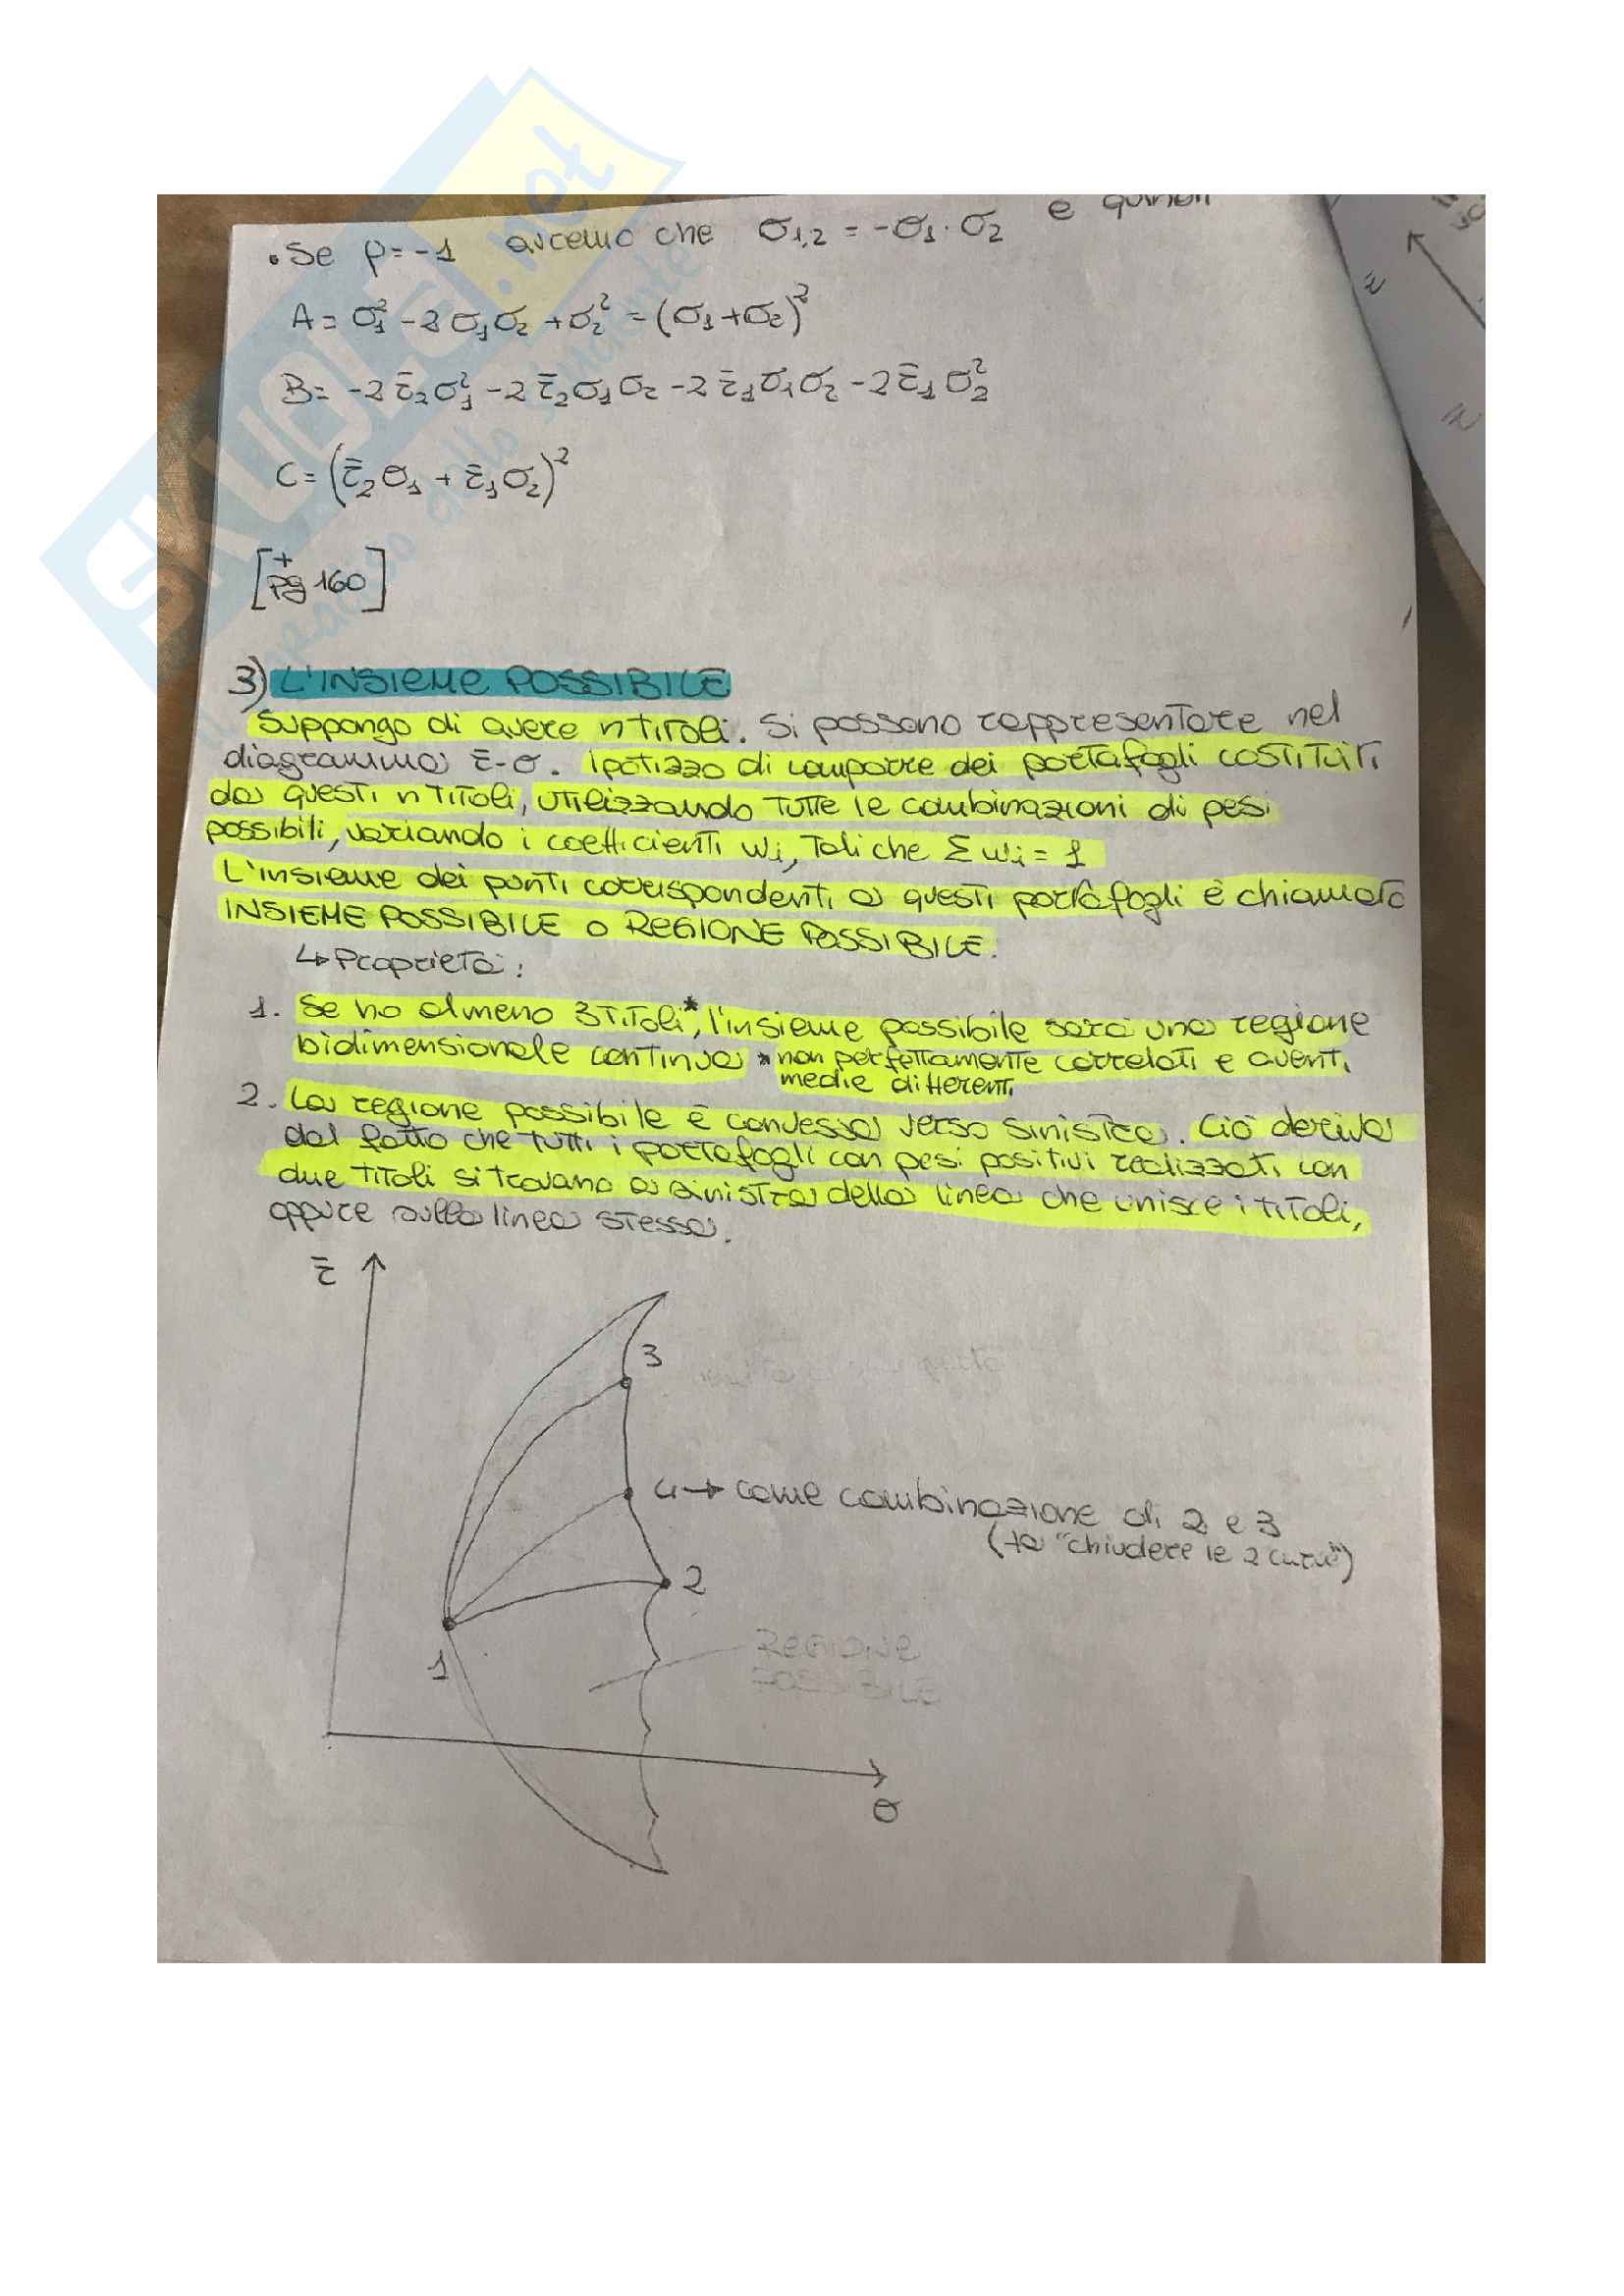 • Se ρ = -1 avremo che σ1,2 = -σ1 · σ2 e quindi
A = σ1² - 2σ1σ2 + σ2² = (σ1+σ2)²
B = -2 r̄2σ1² - 2 r̄2σ1σ2 - 2 r̄1σ1σ2 - 2 r̄1σ2²
C = (r̄2σ1 + r̄1σ2)²
[+ pg 160]
3) L'INSIEME POSSIBILE
Suppongo di avere n titoli. Si possono rappresentare nel
diagramma r̄-σ. Ipotizzo di comporre dei portafogli costituiti
da questi n titoli, utilizzando tutte le combinazioni di pesi
possibili, variando i coefficienti wi, tali che Σwi = 1
L'insieme dei punti corrispondenti a questi portafogli è chiamato
INSIEME POSSIBILE o REGIONE POSSIBILE.
↳ Proprietà:
1. Se ho almeno 3 titoli*, l'insieme possibile sarà una regione
bidimensionale continua * non perfettamente correlati e aventi
medie differenti
2. La regione possibile è convessa verso sinistra. Ciò deriva
dal fatto che tutti i portafogli con pesi positivi realizzati con
due titoli si trovano a sinistra della linea che unisce i titoli,
oppure sulla linea stessa.
r̄
3
4 → come combinazione di 2 e 3
(fa "chiudere le 2 curve")
2
1
REGIONE
POSSIBILE
σ
SKUOLA.net